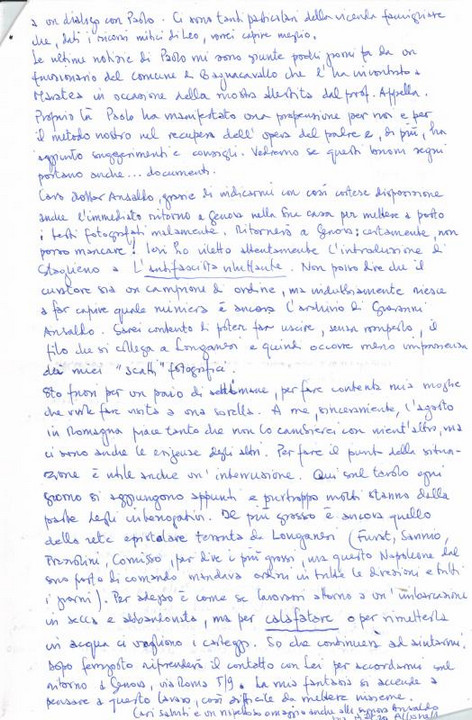 a un dialogo con Paolo. Ci sono tanti particolari della vicenda famigliare
che, dati i ricorsi mitici di Leo, vorrei capire meglio.
Le ultime notizie di Paolo mi sono giunte pochi giorni fa da un
funzionario del comune di Bagnacavallo che l'ha incontrato a
Maratea in occasione della mostra allestita dal prof. Appella.
Proprio là Paolo ha manifestato una propensione per noi e per
il metodo nostro nel recupero dell'opera del padre e, di più, ha
aggiunto suggerimenti e consigli. Vedremo se questi buoni segni
portano anche... documenti.
Caro dottor Ansaldo, grazie di indicarmi con così cortese disposizione
anche l'immediato ritorno a Genova nella Sua casa per mettere a posto
i testi fotografati malamente. Ritornerò a Genova: certamente, non
posso mancare! Ieri ho riletto attentamente l'introduzione di
Staglieno a L'antifascista riluttante. Non posso dire che il
curatore sia un campione di ordine, ma indubbiamente riesce
a far capire quale miniera è ancora l'archivio di Giovanni
Ansaldo. Sarei contento di poter far uscire, senza romperlo, il
filo che si collega a Longanesi e quindi occorre meno imprecisione
dei miei "scatti" fotografici.
Sto fuori per un paio di settimane, per fare contenta mia moglie
che vuole fare visita a una sorella. A me, sinceramente, l'agosto
in Romagna piace tanto che non lo cambierei con nient'altro, ma
ci sono anche le esigenze degli altri. Per fare il punto della situa-
zione è utile anche un'interruzione. Qui sul tavolo ogni
giorno si aggiungono appunti e purtroppo molti stanno dalla
parte degli interrogativi. Il più grosso è ancora quello
della rete epistolare tenuta da Longanesi (Furst, Sannio,
Prezzolini, Comisso, per dire i più grossi, ma questo Napoleone dal
suo posto di comando mandava ordini in tutte le direzioni e tutti
i giorni). Per adesso è come se lavorassi attorno a un'imbarcazione
in secca e abbandonata, ma per calafatare o per rimetterla
in acqua ci vogliono i carteggi. So che continuerà ad aiutarmi.
Dopo ferragosto riprenderò il contatto con Lei per accordarmi sul
ritorno a Genova, via Roma 5/9. La mia fantasia si accende a
pensare a questo lavoro, così difficile da mettere insieme.
Cari saluti e un rispettoso omaggio anche alla signora Ansaldo